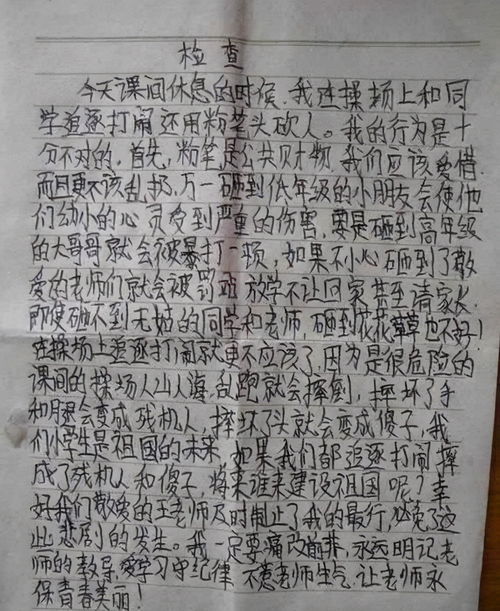 检查
今天课间休息的时候，我在操场上和同
学追逐打闹还用粉笔头砍人。我的行为是十
分不对的，首先，粉笔是公共财物，我们应该爱惜
而且更不该乱扔，万一砸到低年级的小朋友会使他
们幼小的心灵受到严重的伤害，要是砸到高年级
的大哥哥就会被暴打一顿，如果不小心砸到了敬
爱的老师们就会被罚站放学不让回家甚至请家长
即使砸不到无辜的同学和老师，砸到花花草草也不好！
在操场上追逐打闹就更不应该了，因为是很危险的
课间的操场人山人海，乱跑就会摔倒，摔坏了手
和腿会变成残机人，摔坏了头就会变成傻子，我
们小学生是祖国的未来，如果我们都追逐打闹摔
成了残机人和傻子，将来谁来建设祖国呢？幸
好我们敬爱的王老师及时制止了我的最行，必免了这
些悲剧的发生。我一定要痛改前非，永远明记老
师的教导，爱学习守纪律不惹老师生气，让老师永
保青春美丽！